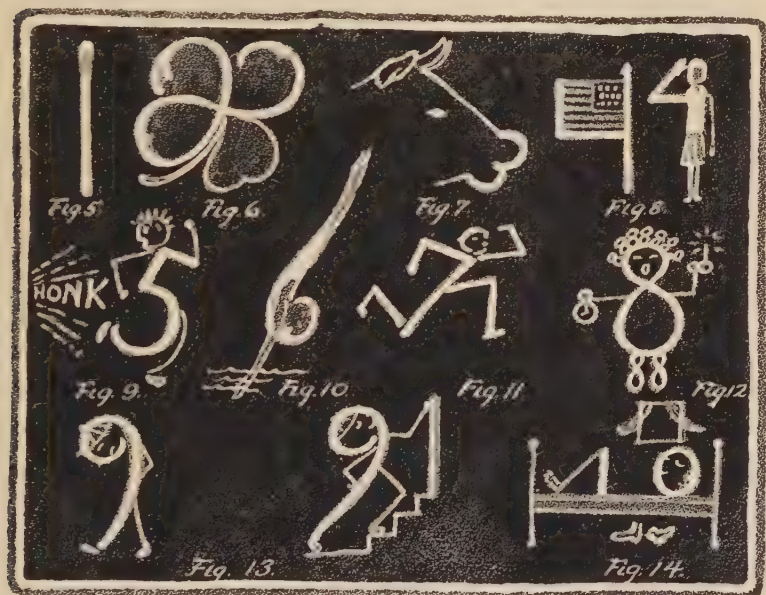 Fig. 5.
Fig. 6
Fig. 7.
Fig. 8.
HONK
Fig. 9.
Fig. 10.
Fig. 11
Fig. 12
Fig. 13.
Fig. 14.